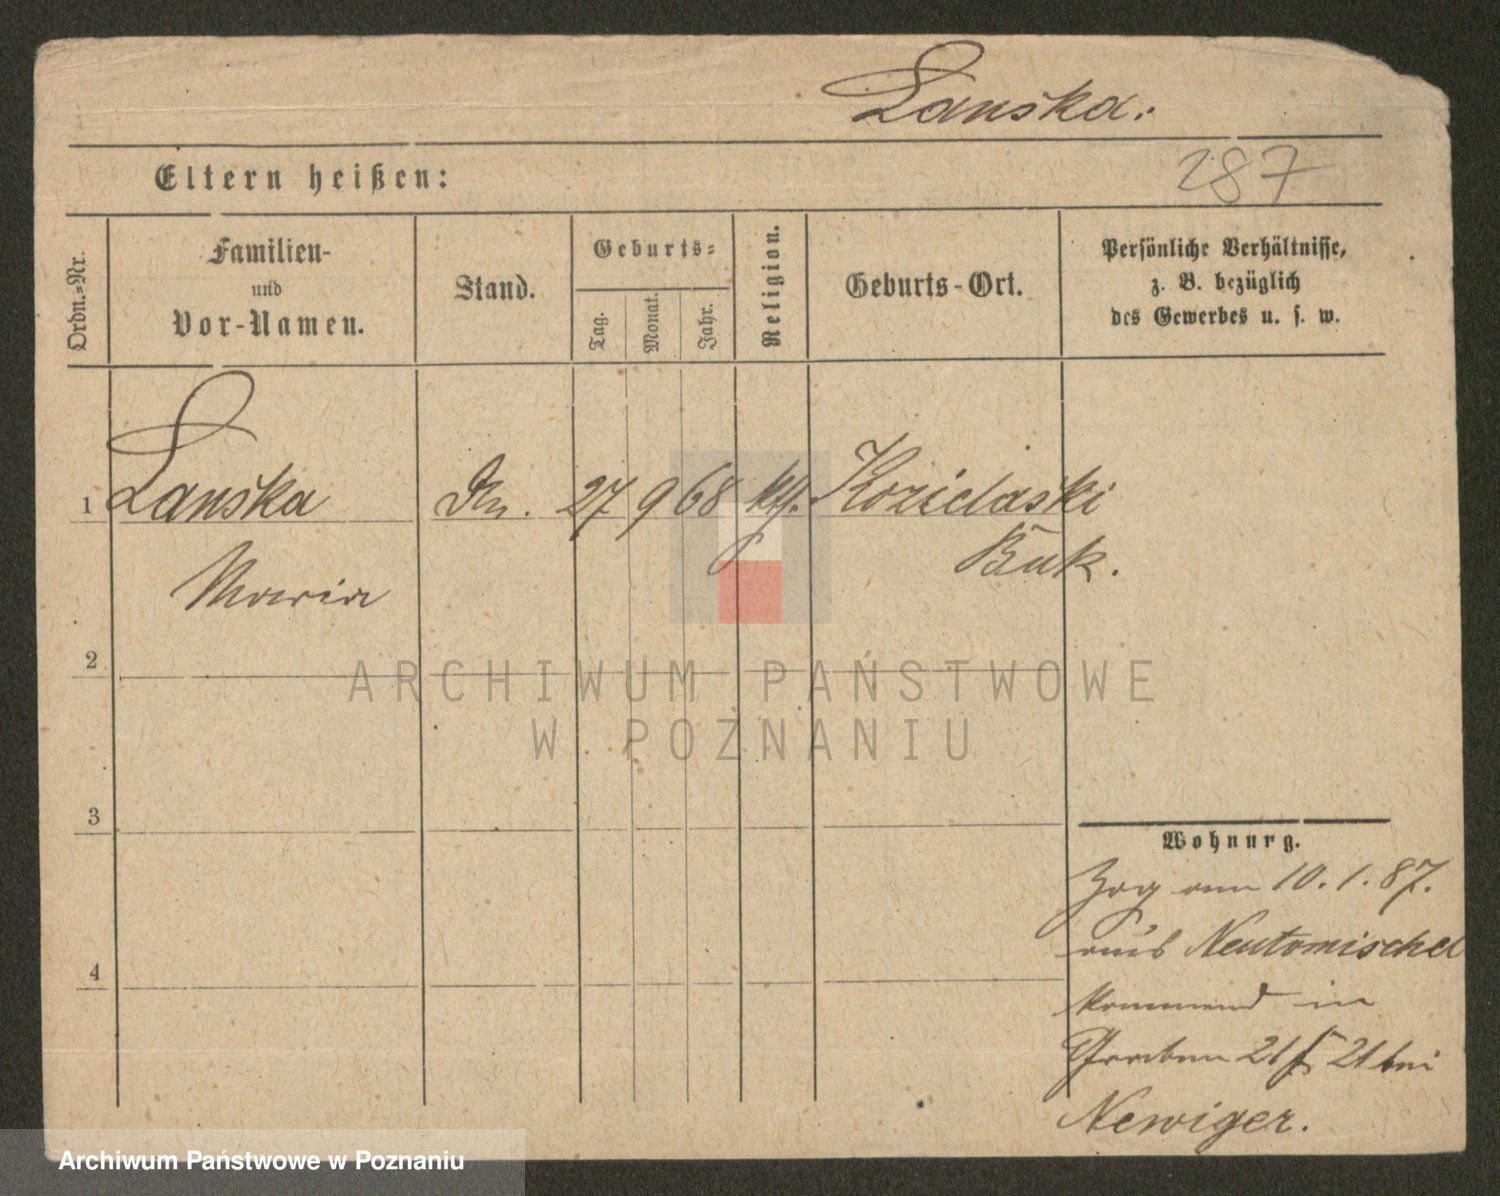 Lanska.
287
Eltern heißen:
Ordn.-Nr.
Familien-
und
Vor-Namen.
Stand.
Geburts-
Tag.
Monat.
Jahr.
Religion.
Geburts-Ort.
Persönliche Verhältnisse,
z. B. bezüglich
des Gewerbes u. s. w.
1 Lanska 27 9 68 kth. Kozielaski
Maria Buk.
2
3
4
Wohnung.
Zog am 10.1.87.
aus Neutomischel
kommend in
Graben 21 bei
Newiger.
ARCHIWUM PAŃSTWOWE
W POZNANIU
Archiwum Państwowe w Poznaniu